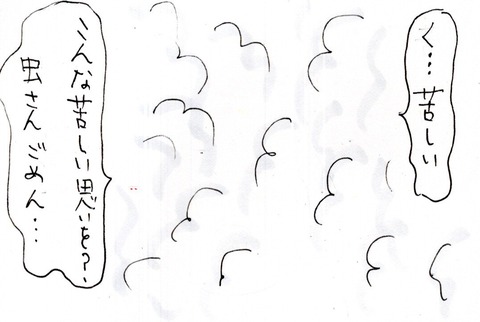 く…苦しい
こんな苦しい思いを?
虫さんごめん…